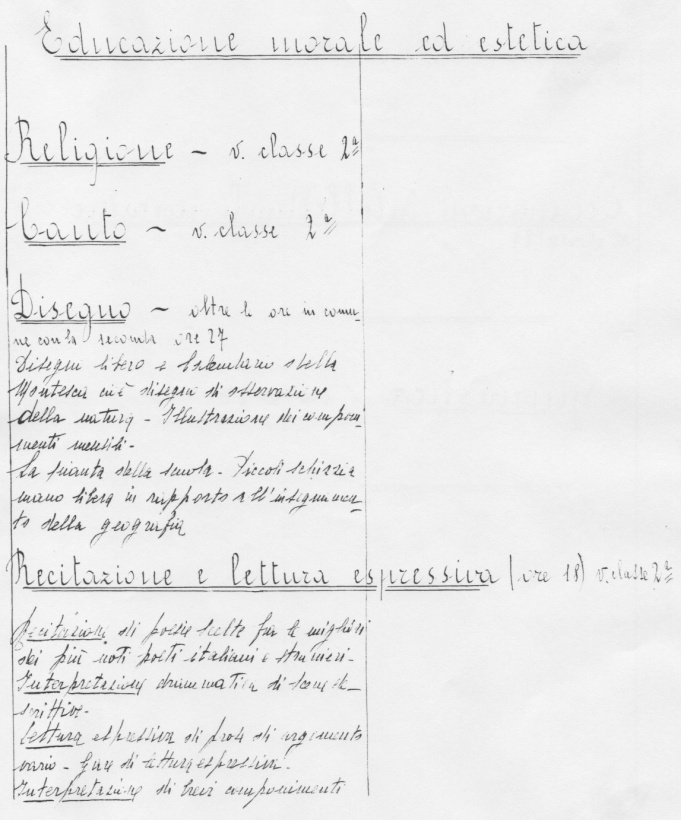 Educazione morale ed estetica
Religione - v. classe 2ª
Canto - v. classe 2ª
Disegno - oltre le ore in comu-
ne con la seconda ore 27
Disegni libero e Calendario della
Montesca cioè disegni di osservazione
della natura - Illustrazione dei componi
menti mensili -
La pianta della scuola - Piccoli schizzi a
mano libera in rapporto all'insegnamen-
to della geografia
Recitazione e lettura espressiva (ore 18) v. classe 2ª
Recitazione di poesie scelte fra le migliori
dei più noti poeti italiani e stranieri -
Interpretazione drammatica di scene de-
scrittive -
Lettura espressiva di prose di argomento
vario - Gare di lettura espressiva -
Interpretazione di brevi componimenti